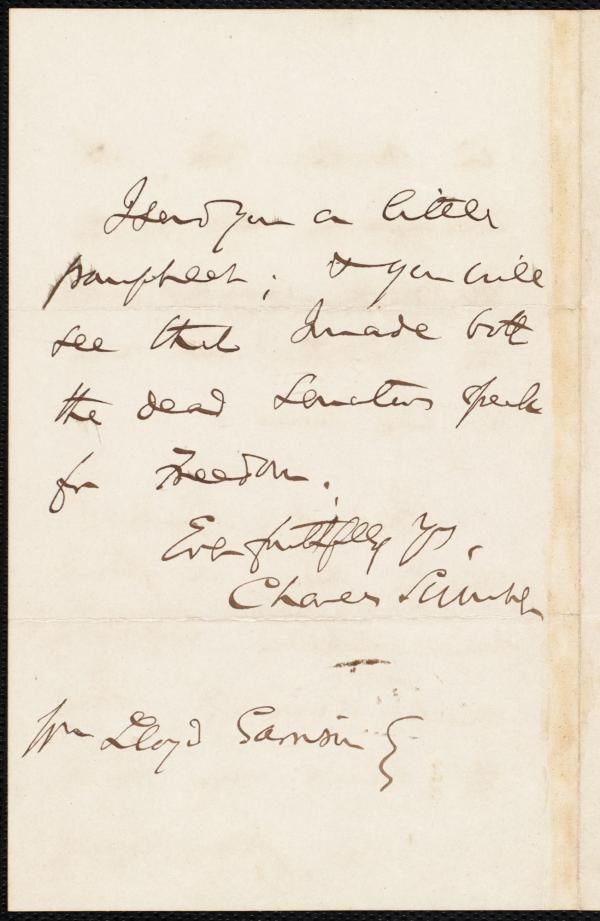 I send you a little
pamphlet; & you will
see that I made both
the dead Senators speak
for Freedom.
Ever faithfully Yrs,
Charles Sumner
Wm Lloyd Garrison